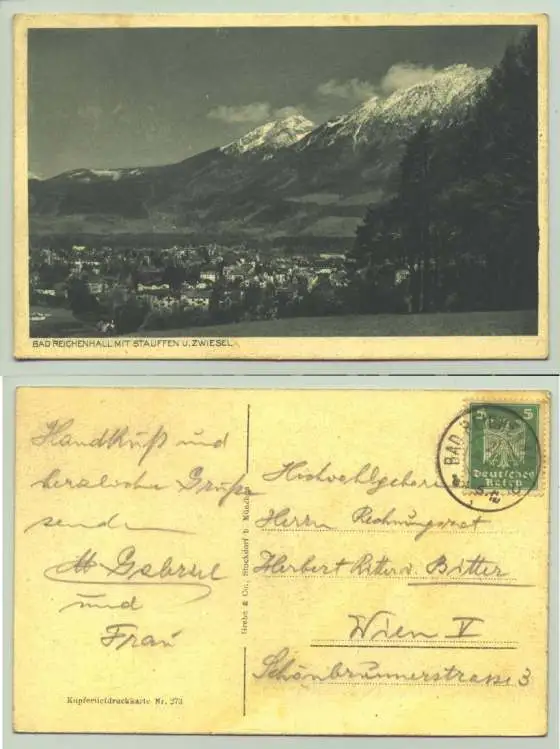 BAD REICHENHALL MIT STAUFFEN U. ZWIESEL
Handkuß und
herzliche Grüße
senden
und
Frau
Kupfertiefdruckkarte Nr. 273
Brehn & Co., Stockdorf b. München
5 5
Deutsches
Reich
BAD
Hochwohlgeboren
Herrn Rechnungsrat
Herbert Ritter v. Bitter
Wien V
Schönbrunnerstrasse 3